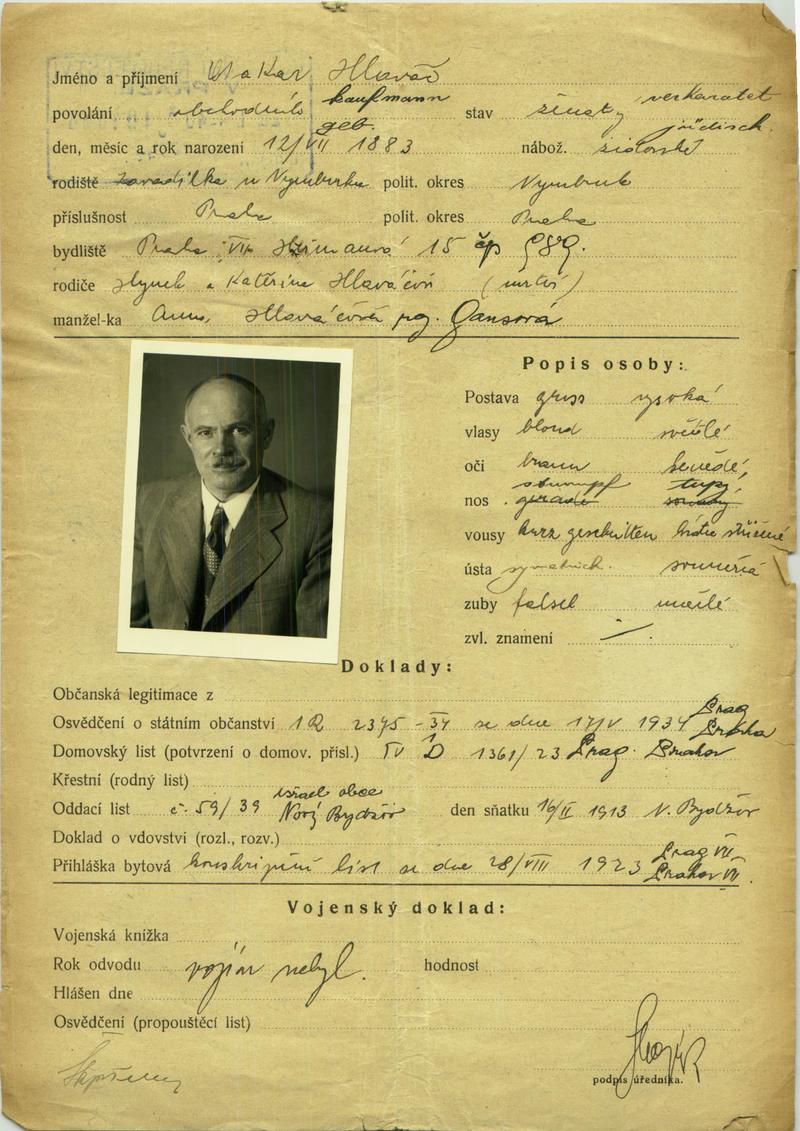 Jméno a příjmení Otakar Hlaváč
povolání obchodník kaufmann stav ženatý verheiratet
geb. jüdisch
den, měsíc a rok narození 12/VII 1883 nábož. židovské
rodiště Zavadilka u Nymburka polit. okres Nymburk
příslušnost Praha polit. okres Praha
bydliště Praha VII 15 čp 989.
rodiče Hynek a Kateřina Hlaváčovi (mrtví)
manžel-ka Anna Hlaváčová Gansová
Popis osoby:
Postava gross vysoká
vlasy blond světlé
oči braun hnědé,
stumpf tupý,
nos gerade
vousy kurz geschnitten krátce střižené
ústa symetrisch. souměrná
zuby falsch umělé
zvl. znamení
Doklady:
Občanská legitimace z
Osvědčení o státním občanství 1R 2375-34 ze dne 17/V 1934 Prag
Domovský list (potvrzení o domov. přísl.) IV D 1361/23 Prag.
Křestní (rodný list)
israel obce
Oddací list č. 59/39 Nový Bydžov den sňatku 16/II 1913 N. Bydžov
Doklad o vdovství (rozl., rozv.)
Přihláška bytová konskripční list ze dne 28/VIII 1923 Prag VII
Vojenský doklad:
Vojenská knížka
Rok odvodu vojín nebyl. hodnost
Hlášen dne
Osvědčení (propouštěcí list)
podpis úředníka.